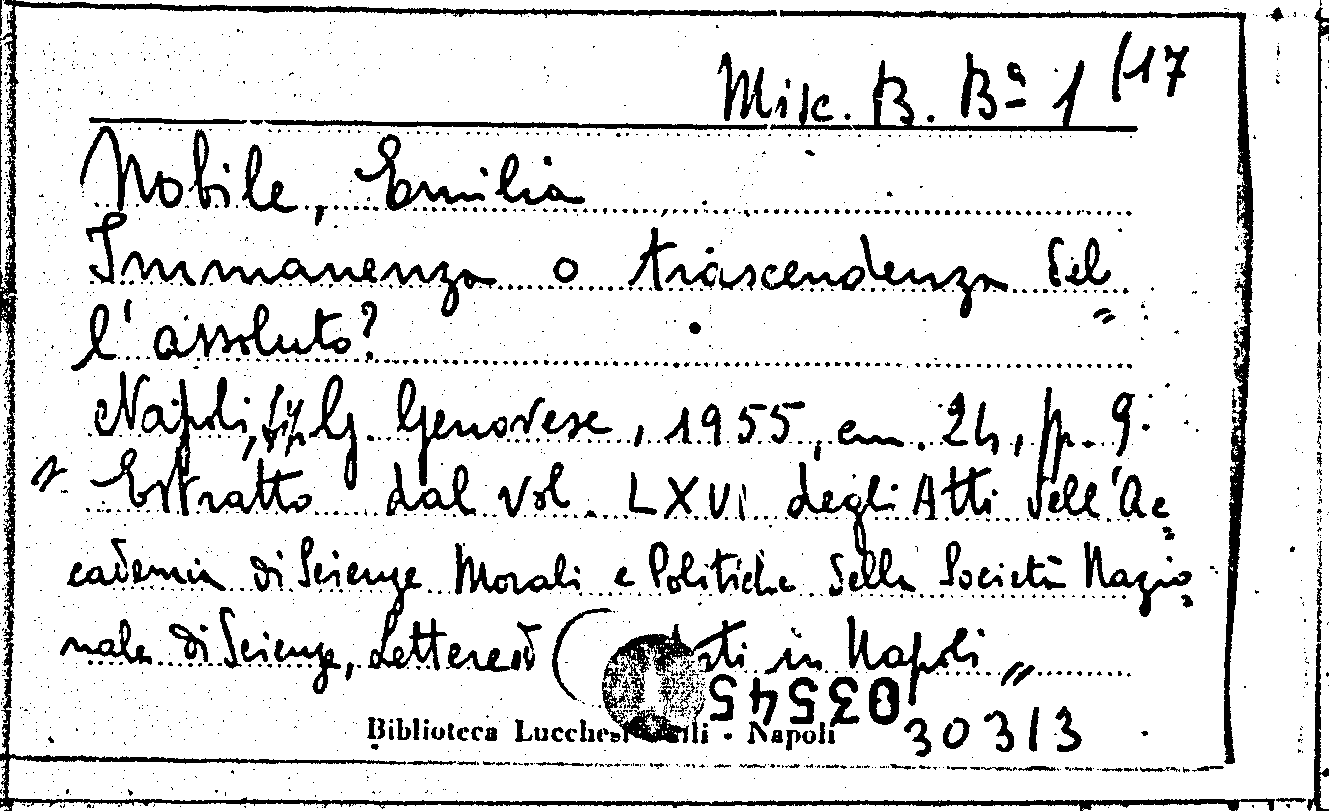 Misc. B. Bª 1 (17
Nobile, Emilia
Immanenza o trascendenza del
l'assoluto?
Napoli, tip. G. Genovese, 1955, cm. 24, pp. 9.
" Estratto dal vol. LXVI degli Atti dell'Ac=
cademia di Scienze Morali e Politiche della Società Nazio=
nale di Scienze, Lettere ed Arti in Napoli "
03545
30313
Biblioteca Lucchesi Palli - Napoli